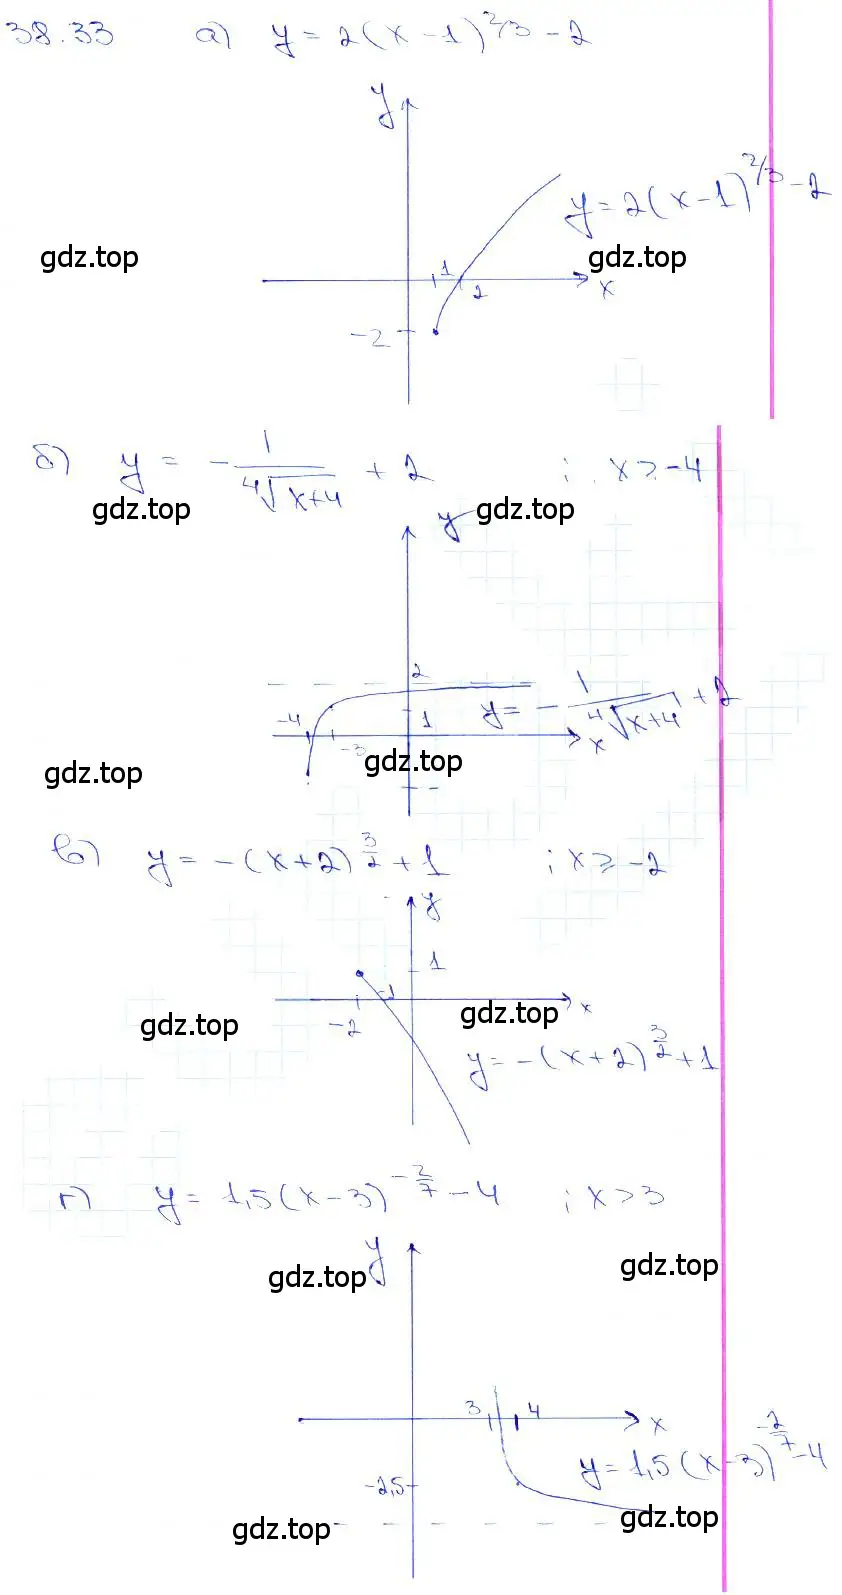 38.33 а) y = 2(x-1)^{2/3} - 2
y
y = 2(x-1)^{2/3} - 2
gdz.top
1
gdz.top
2
x
-2
б) y = -\frac{1}{\sqrt[4]{x+4}} + 2 ; x > -4
gdz.top
gdz.top
y
2
-4
1
y = -\frac{1}{\sqrt[4]{x+4}} + 2
-3
x
gdz.top
gdz.top
в) y = -(x+2)^{\frac{3}{2}} + 1 ; x ⩾ -2
y
1
-1
x
-2
gdz.top
gdz.top
y = -(x+2)^{\frac{3}{2}} + 1
г) y = 1,5(x-3)^{-\frac{2}{7}} - 4 ; x > 3
y
gdz.top
gdz.top
3
4
x
y = 1,5(x-3)^{-\frac{2}{7}} - 4
-2,5
gdz.top
gdz.top